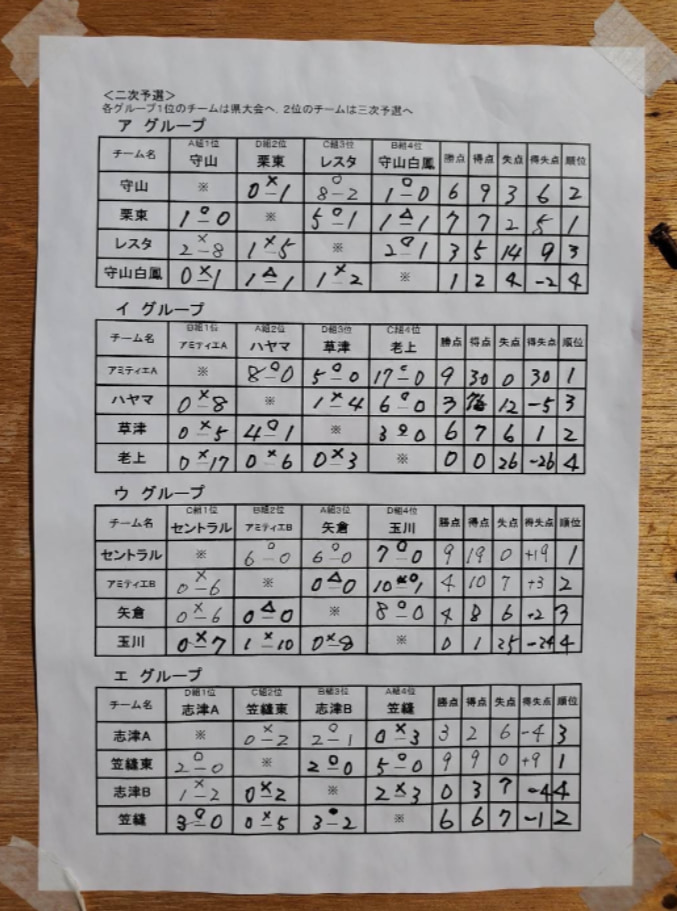 <二次予選>
各グループ1位のチームは県大会へ、2位のチームは三次予選へ
ア グループ
A組1位 D組2位 C組3位 B組4位
チーム名 守山 栗東 レスタ 守山白鳳 勝点 得点 失点 得失点 順位
守山 ※ 0×-1 8○-2 1○-0 6 9 3 6 2
栗東 1○-0 ※ 5○-1 1△-1 7 7 2 5 1
レスタ 2×-8 1×-5 ※ 2○-1 3 5 14 9 3
守山白鳳 0×-1 1△-1 1×-2 ※ 1 2 4 -2 4
イ グループ
B組1位 A組2位 D組3位 C組4位
チーム名 アミティエA ハヤマ 草津 老上 勝点 得点 失点 得失点 順位
アミティエA ※ 8○-0 5○-0 17○-0 9 30 0 30 1
ハヤマ 0×-8 ※ 1×-4 6○-0 3 12 -5 3
草津 0×-5 4○-1 ※ 3○-0 6 7 6 1 2
老上 0×-17 0×-6 0×-3 ※ 0 0 26 -26 4
ウ グループ
C組1位 B組2位 A組3位 D組4位
チーム名 セントラル アミティエB 矢倉 玉川 勝点 得点 失点 得失点 順位
セントラル ※ 6○-0 6○-0 7○-0 9 19 0 +19 1
アミティエB 0×-6 ※ 0△-0 10○-1 4 10 7 +3 2
矢倉 0×-6 0△-0 ※ 8○-0 4 8 6 +2 3
玉川 0×-7 1×-10 0×-8 ※ 0 1 25 -24 4
エ グループ
D組1位 C組2位 B組3位 A組4位
チーム名 志津A 笠縫東 志津B 笠縫 勝点 得点 失点 得失点 順位
志津A ※ 0×-2 2○-1 0×-3 3 2 6 -4 3
笠縫東 2○-0 ※ 2○-0 5○-0 9 9 0 +9 1
志津B 1×-2 0×-2 ※ 2×-3 0 3 7 -4 4
笠縫 3○-0 0×-5 3●-2 ※ 6 6 7 -1 2